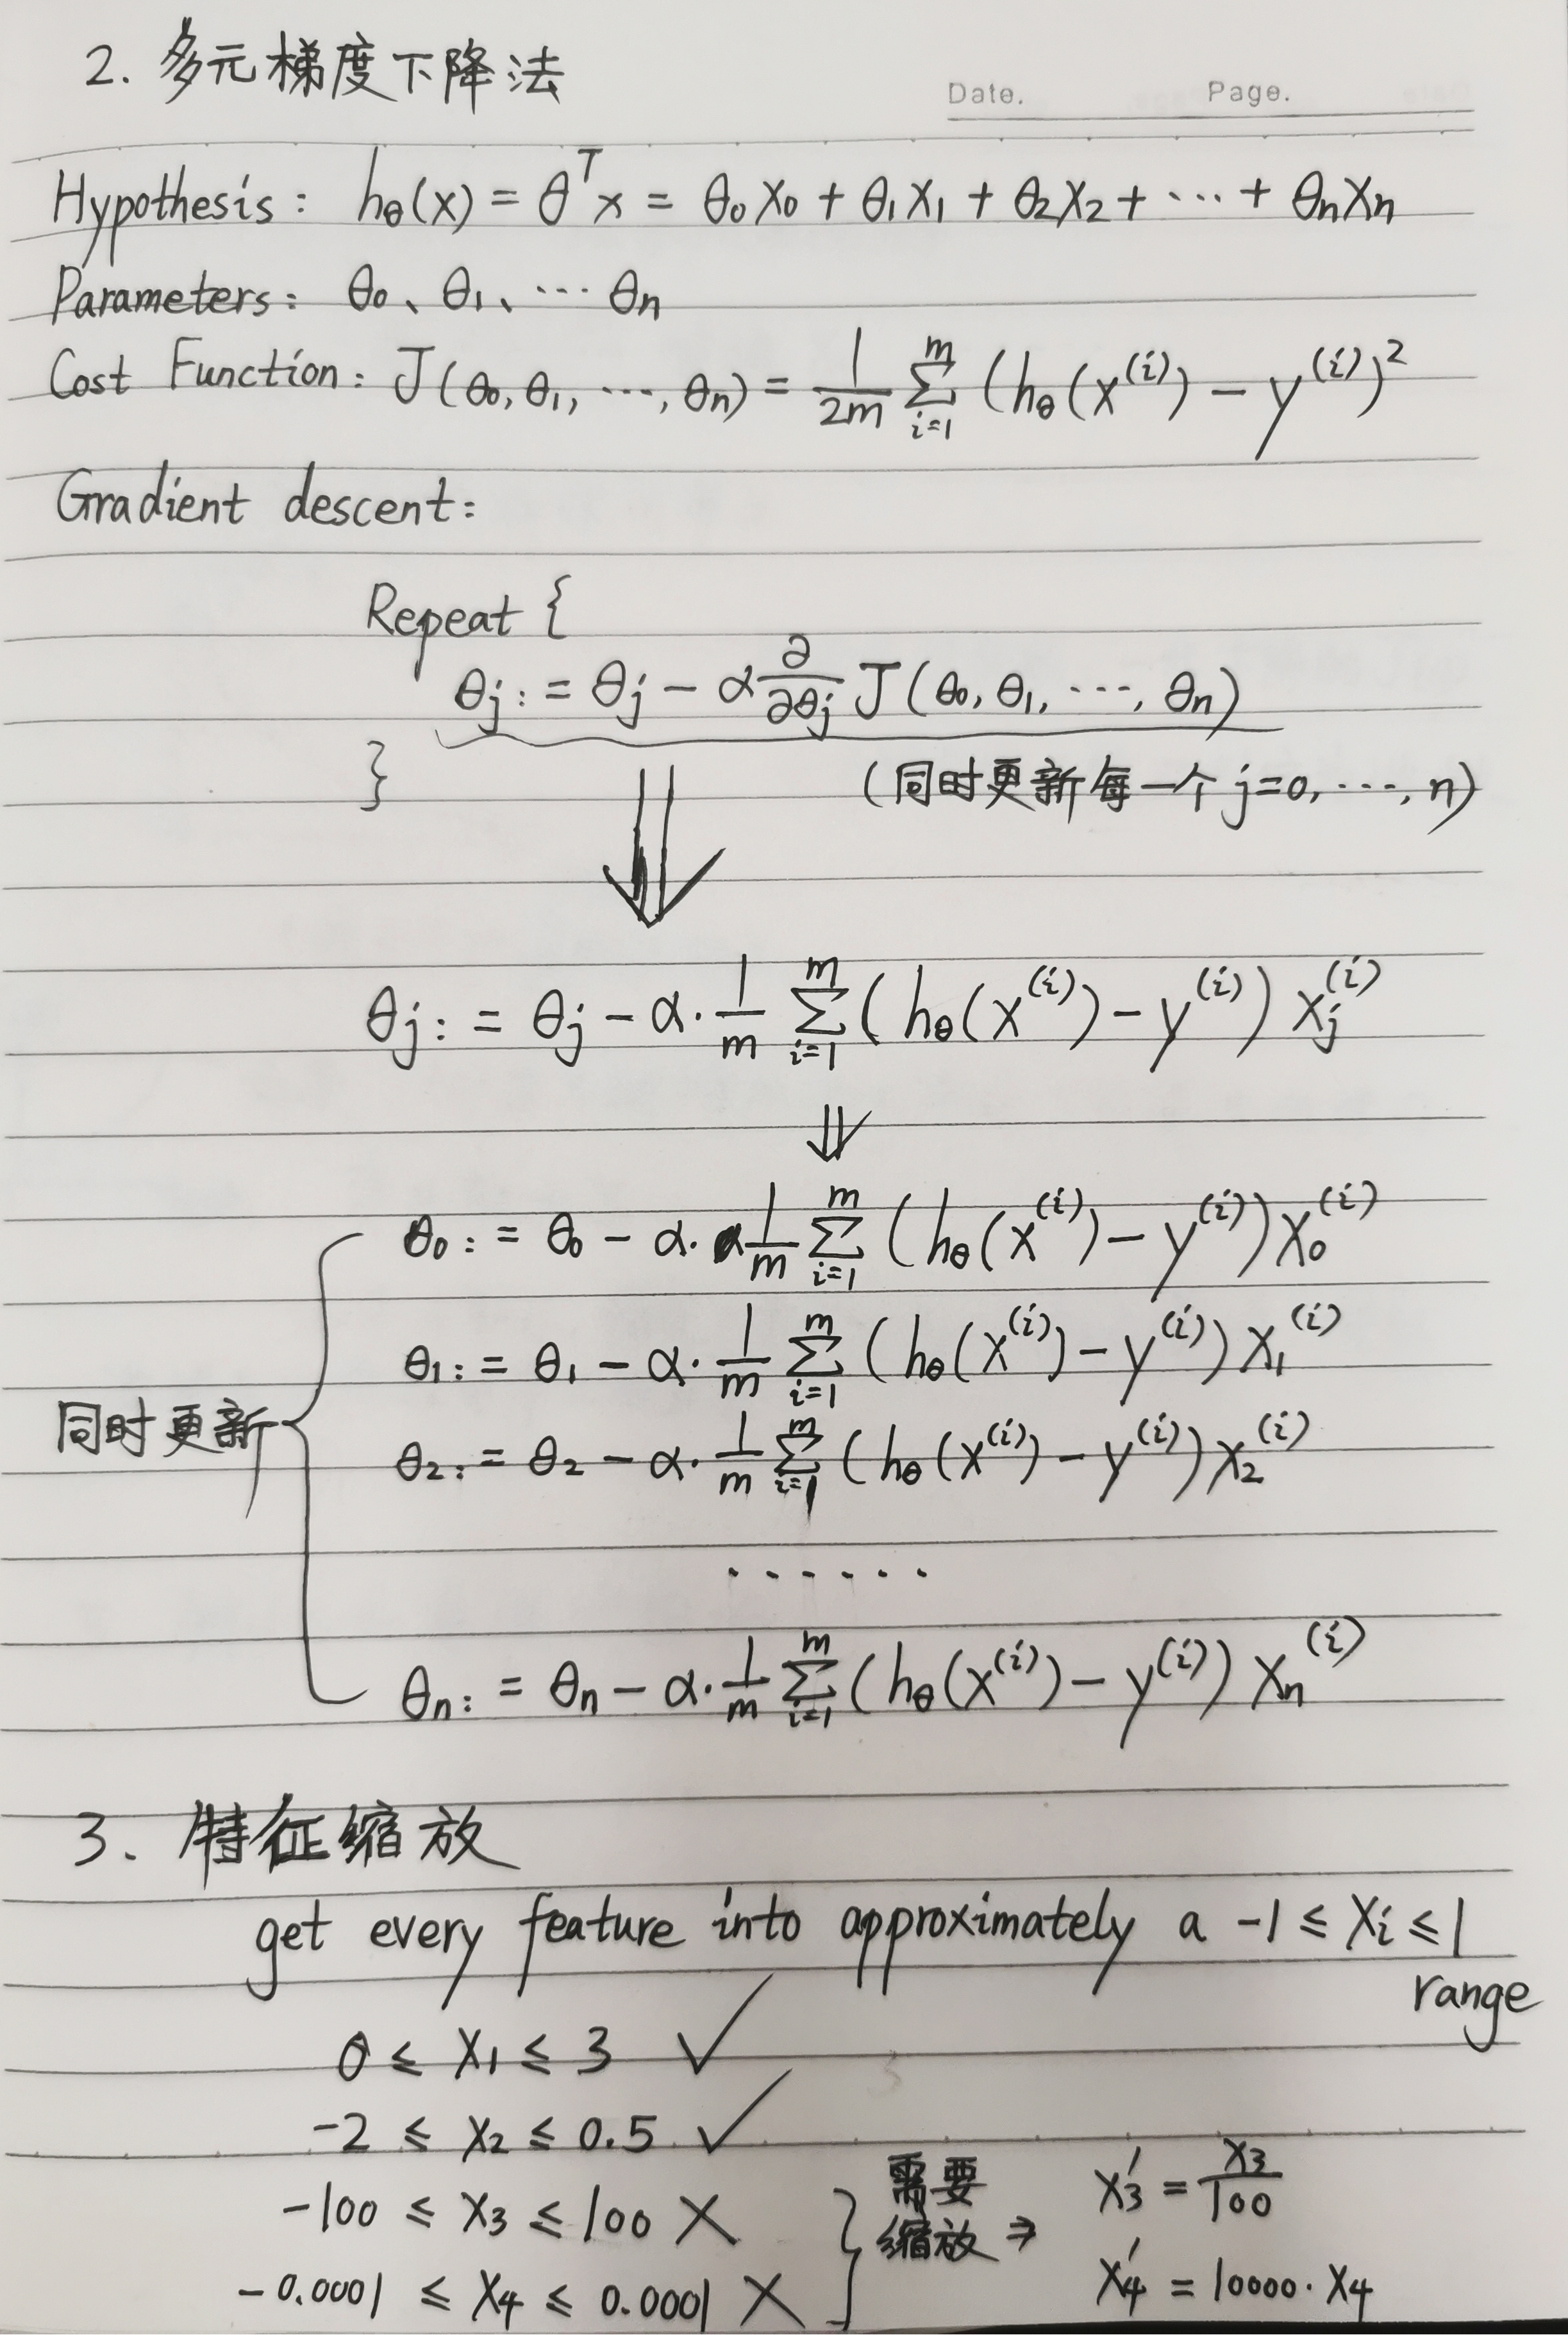 2. 多元梯度下降法
Date. Page.
Hypothesis: hθ(x) = θᵀx = θ₀x₀ + θ₁x₁ + θ₂x₂ + ··· + θₙxₙ
Parameters: θ₀、θ₁、··· θₙ
Cost Function: J(θ₀, θ₁, ···, θₙ) = 1/2m ∑_{i=1}^{m} (hθ(x⁽ⁱ⁾) − y⁽ⁱ⁾)²
Gradient descent:
Repeat {
θj := θj − α ∂/∂θj J(θ₀, θ₁, ···, θₙ)
}
(同时更新每一个 j=0, ···, n)
⇓
θj := θj − α · 1/m ∑_{i=1}^{m} (hθ(x⁽ⁱ⁾) − y⁽ⁱ⁾) xj⁽ⁱ⁾
⇓
θ₀ := θ₀ − α · 1/m ∑_{i=1}^{m} (hθ(x⁽ⁱ⁾) − y⁽ⁱ⁾) x₀⁽ⁱ⁾
θ₁ := θ₁ − α · 1/m ∑_{i=1}^{m} (hθ(x⁽ⁱ⁾) − y⁽ⁱ⁾) x₁⁽ⁱ⁾
同时更新
θ₂ := θ₂ − α · 1/m ∑_{i=1}^{m} (hθ(x⁽ⁱ⁾) − y⁽ⁱ⁾) x₂⁽ⁱ⁾
······
θₙ := θₙ − α · 1/m ∑_{i=1}^{m} (hθ(x⁽ⁱ⁾) − y⁽ⁱ⁾) xₙ⁽ⁱ⁾
3、特征缩放
get every feature into approximately a −1 ≤ xᵢ ≤ 1
range
0 ≤ x₁ ≤ 3 ✓
−2 ≤ x₂ ≤ 0.5 ✓
−100 ≤ x₃ ≤ 100 ×
−0.0001 ≤ x₄ ≤ 0.0001 ×
需要
缩放 ⇒
x₃′ = x₃/100
x₄′ = 10000 · x₄